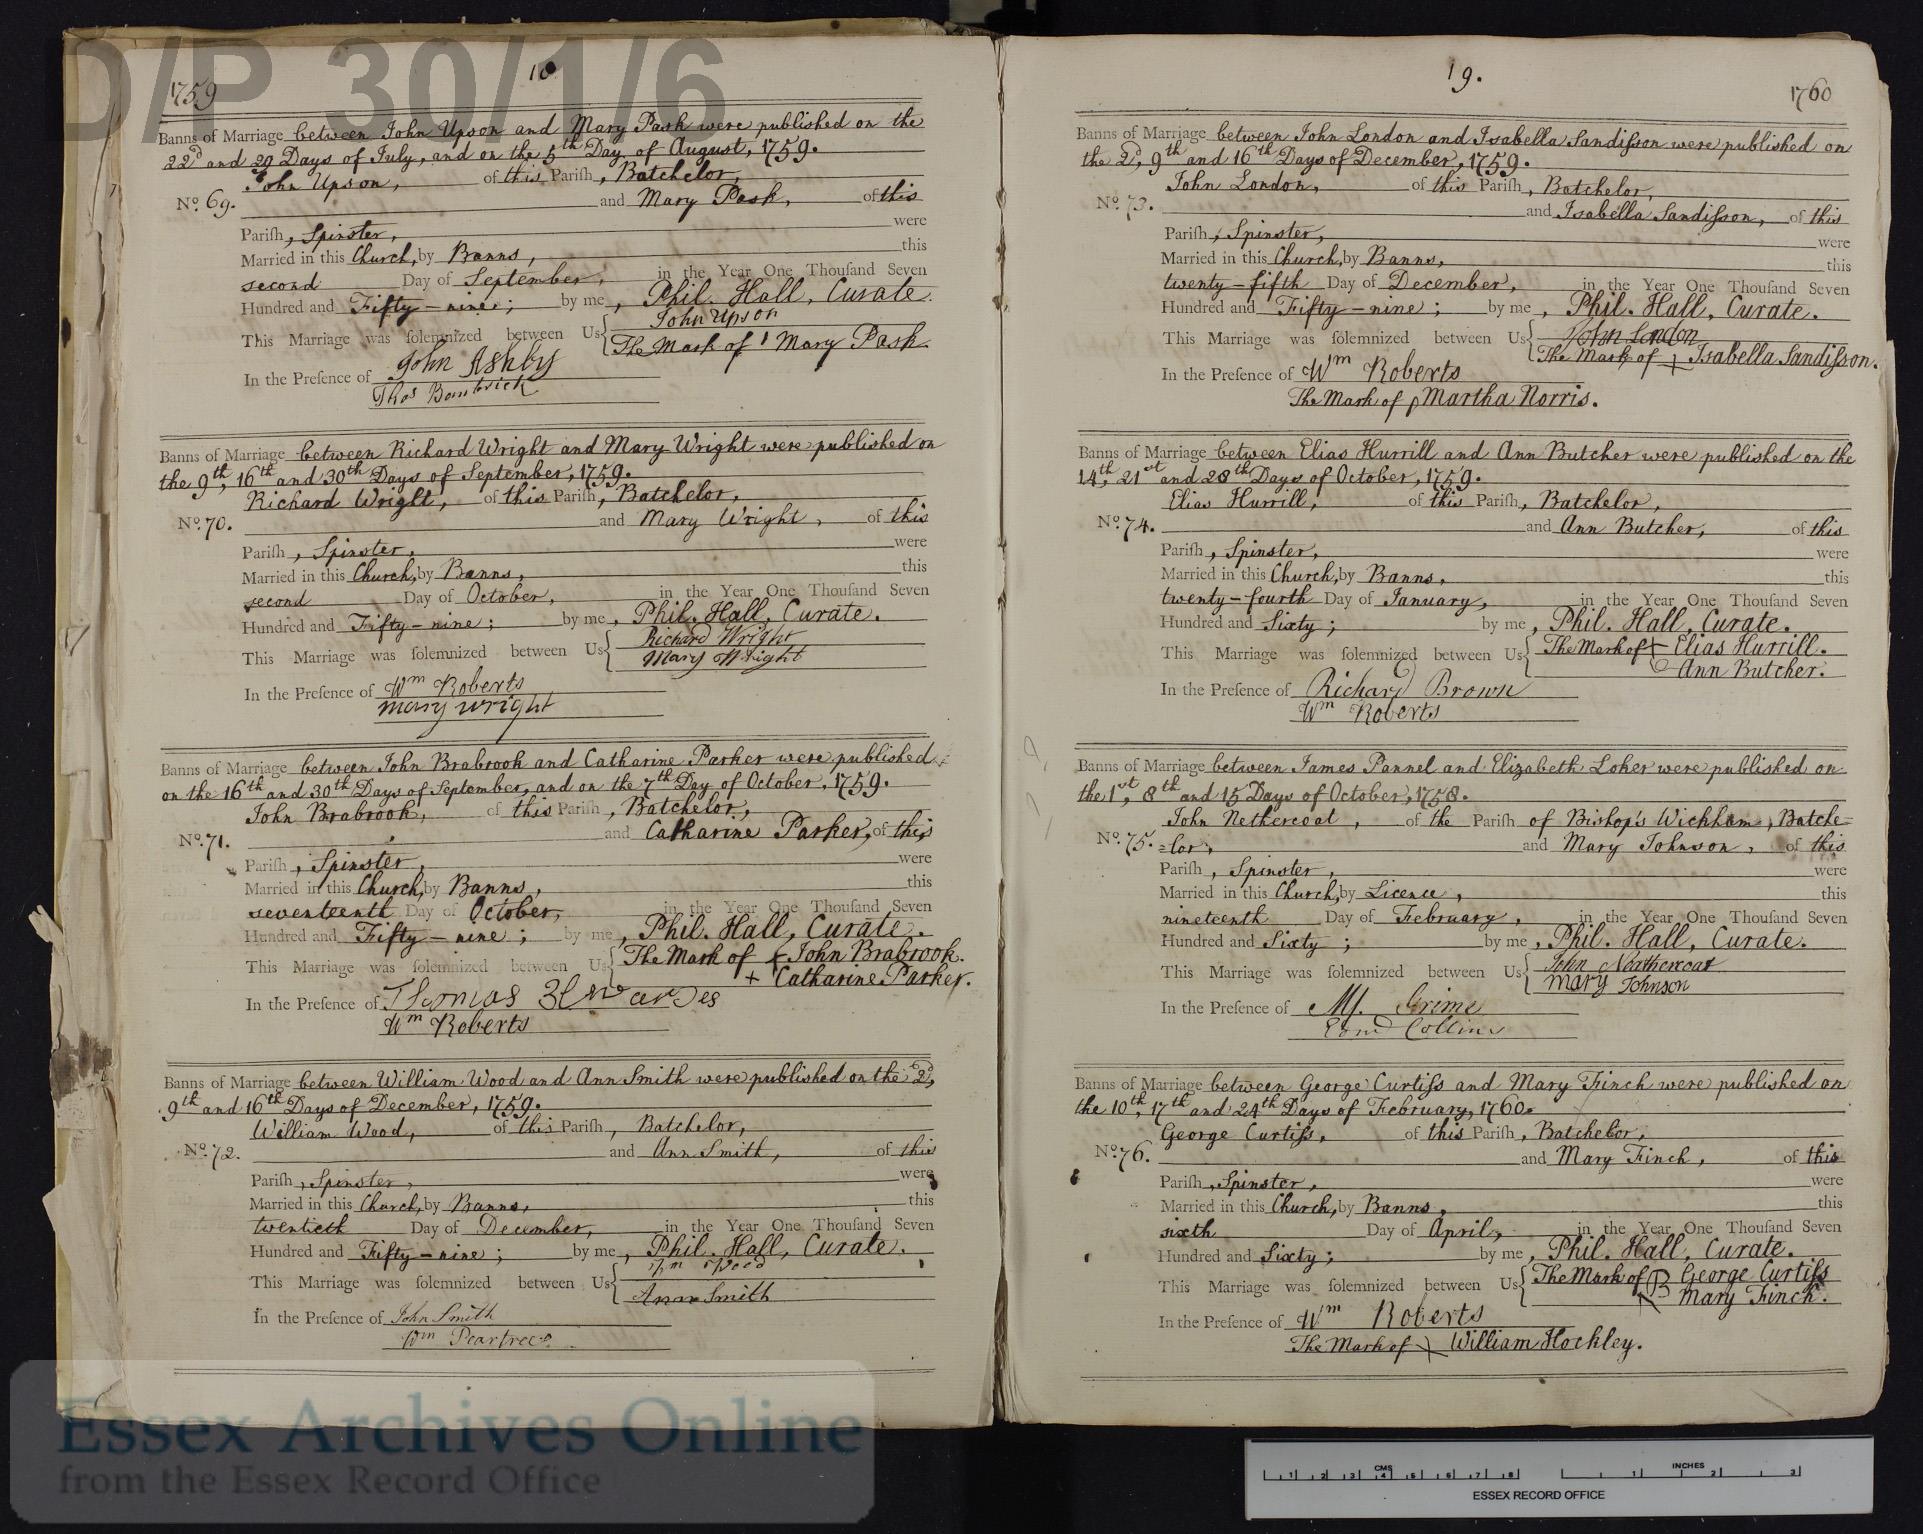 D/P 30/1/6
1759
18
Banns of Marriage between John Upson and Mary Pask were published on the
22d and 29 Days of July, and on the 5th Day of August, 1759.
John Upson, of this Parish, Batchelor,
No. 69. and Mary Pask, of this
Parish, Spinster, were
Married in this Church, by Banns, this
second Day of September, in the Year One Thousand Seven
Hundred and Fifty-nine; by me, Phil. Hall, Curate.
This Marriage was solemnized between Us John Upson
The Mark of Mary Pask
In the Presence of John Ashby
Thos
Banns of Marriage between Richard Wright and Mary Wright were published on
the 9th, 16th and 30th Days of September, 1759.
Richard Wright, of this Parish, Batchelor,
No. 70. and Mary Wright, of this
Parish, Spinster, were
Married in this Church, by Banns, this
second Day of October, in the Year One Thousand Seven
Hundred and Fifty-nine; by me, Phil. Hall, Curate.
This Marriage was solemnized between Us Richard Wright
Mary Wright
In the Presence of Wm Roberts
mary wright
Banns of Marriage between John Brabrook and Catharine Parker were published
on the 16th and 30th Days of September, and on the 7th Day of October, 1759.
John Brabrook, of this Parish, Batchelor,
No. 71. and Catharine Parker, of this
Parish, Spinster, were
Married in this Church, by Banns, this
seventeenth Day of October, in the Year One Thousand Seven
Hundred and Fifty-nine; by me, Phil. Hall, Curate.
This Marriage was solemnized between Us The Mark of + John Brabrook.
+ Catharine Parker.
In the Presence of Thomas
Wm Roberts
Banns of Marriage between William Wood and Ann Smith were published on the 2d,
9th and 16th Days of December, 1759.
William Wood, of this Parish, Batchelor,
No. 72. and Ann Smith, of this
Parish, Spinster, were
Married in this Church, by Banns, this
twentieth Day of December, in the Year One Thousand Seven
Hundred and Fifty-nine; by me, Phil. Hall, Curate.
This Marriage was solemnized between Us Wm Wood
Ann Smith
In the Presence of John Smith
Wm Peartree
19.
1760
Banns of Marriage between John London and Isabella Sandisson were published on
the 2d, 9th and 16th Days of December, 1759.
John London, of this Parish, Batchelor,
No. 73. and Isabella Sandisson, of this
Parish, Spinster, were
Married in this Church, by Banns, this
twenty-fifth Day of December, in the Year One Thousand Seven
Hundred and Fifty-nine; by me, Phil. Hall, Curate.
This Marriage was solemnized between Us John London
The Mark of + Isabella Sandisson.
In the Presence of Wm Roberts
The Mark of Martha Norris.
Banns of Marriage between Elias Hurrill and Ann Butcher were published on the
14th, 21st and 28th Days of October, 1759.
Elias Hurrill, of this Parish, Batchelor,
No. 74. and Ann Butcher, of this
Parish, Spinster, were
Married in this Church, by Banns, this
twenty-fourth Day of January, in the Year One Thousand Seven
Hundred and Sixty; by me, Phil. Hall, Curate.
This Marriage was solemnized between Us The Mark of + Elias Hurrill.
Ann Butcher.
In the Presence of Richard Brown
Wm Roberts
Banns of Marriage between James Pannel and Elizabeth Loker were published on
the 1st, 8th and 15 Days of October, 1758.
John Nethercoat, of the Parish of Bishop's Wickham, Batche=
No. 75. =lor, and Mary Johnson, of this
Parish, Spinster, were
Married in this Church, by Licence, this
nineteenth Day of February, in the Year One Thousand Seven
Hundred and Sixty; by me, Phil. Hall, Curate.
This Marriage was solemnized between Us John Neathercoat
Mary Johnson
In the Presence of M. Grime
Edmd Collins
Banns of Marriage between George Curtiss and Mary Finch were published on
the 10th, 17th and 24th Days of February, 1760.
George Curtiss, of this Parish, Batchelor,
No. 76. and Mary Finch, of this
Parish, Spinster, were
Married in this Church, by Banns, this
sixth Day of April, in the Year One Thousand Seven
Hundred and Sixty; by me, Phil. Hall, Curate.
This Marriage was solemnized between Us The Mark of B George Curtiss
Mary Finch.
In the Presence of Wm Roberts
The Mark of William Hockley.
Essex Archives Online
from the Essex Record Office
CMS 1 2 3 4 5 6 7 8
INCHES 1 2 3
ESSEX RECORD OFFICE